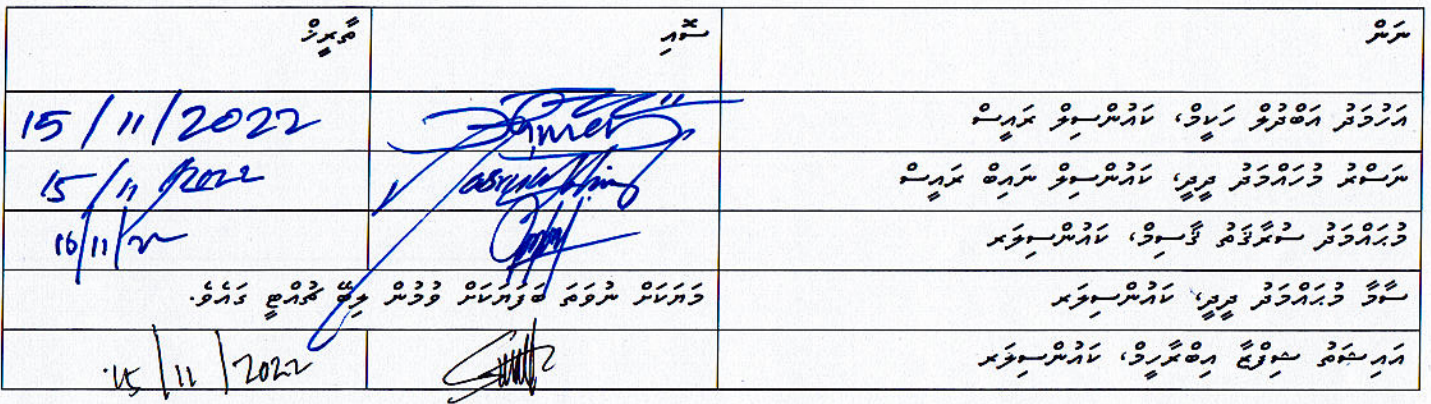 ނަން ސޮއި ތާރީޚް
އަހުމަދު އަބްދުލް ހަކީމް، ކައުންސިލް ރައީސް 15/11/2022
ނަސްރު މުހައްމަދު ދީދީ، ކައުންސިލް ނައިބް ރައީސް 15/11/2022
މުޙައްމަދު ސުރާޤަތު ޤާސިމް، ކައުންސިލަރ 16/11/22
ސާމާ މުޙައްމަދު ދީދީ، ކައުންސިލަރ މަޔަކަށް ނުވަތަ ބަފަޔަކަށް ވުމުން ލިބޭ ޗުއްޓީ ގައެވެ.
އައިޝަތު ޝިފްޒާ އިބްރާހީމް، ކައުންސިލަރ 15/11/2022